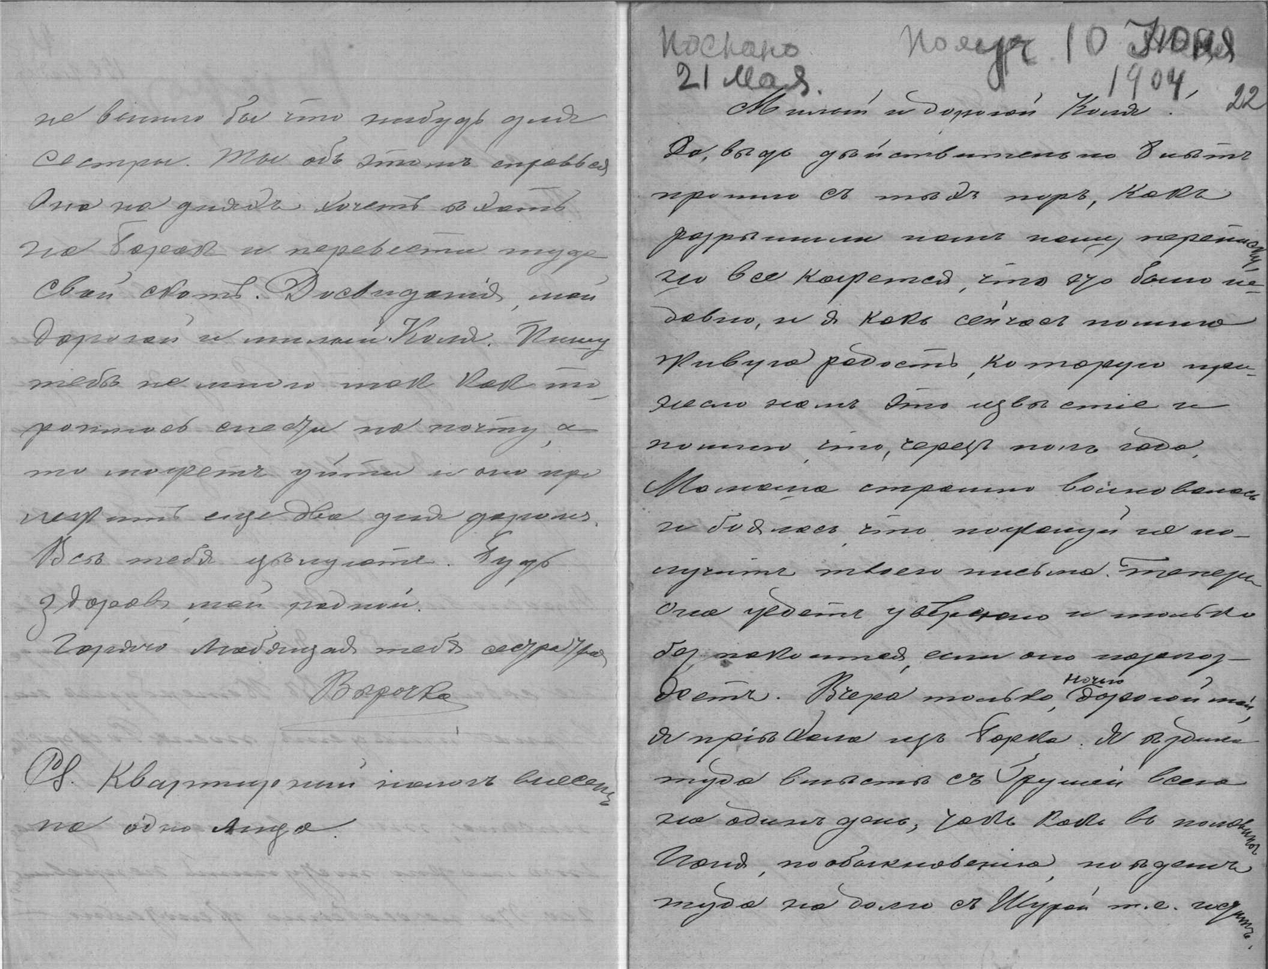 не вышло бы что нибудь для
сестры. Ты объ этомъ справься
Она на дняхъ хочетъ ѣхать
на и перевести туда
свой скотъ. Досвиданія, мой
дорогой и милый Коля. Пишу
тебѣ не много так как то-
роплюсь снести на почту, а
то можетъ уйти и оно про
лежитъ еще два дня даромъ.
Всѣ тебя цѣлуютъ. Будь
здоровъ, мой родной.
Горячо любящая тебя сестра
Вѣрочка
PS. Квартирный налогъ внесенъ
на одно лицо.
Послано Получ. 10 Іюня
21 Мая. 1904 22
Милый и дорогой Коля!
Да, вѣдь дѣйствительно 8 лѣтъ
прошло съ тѣхъ поръ, какъ
разрѣшили намъ нашу переписку,
но все кажется, что это было не-
давно, и я какъ сейчасъ помню
живую радость, которую при-
несло намъ это извѣстіе и
помню, что, черезъ полъ года,
Мамаша страшно волновалась
и боялась, что пожалуй не по-
лучитъ твоего письма. Теперь
она ждетъ увѣренно и только
безпокоится, если оно запоз-
даетъ. Вчера только, ночью дорогой мой,
я пріѣхала изъ . Я ѣздила
туда вмѣстѣ съ Грушей всего
на одинъ день, такъ какъ въ половинѣ
Іюня, по обыкновенію, поѣдемъ
туда на долго съ Шурой т.е.